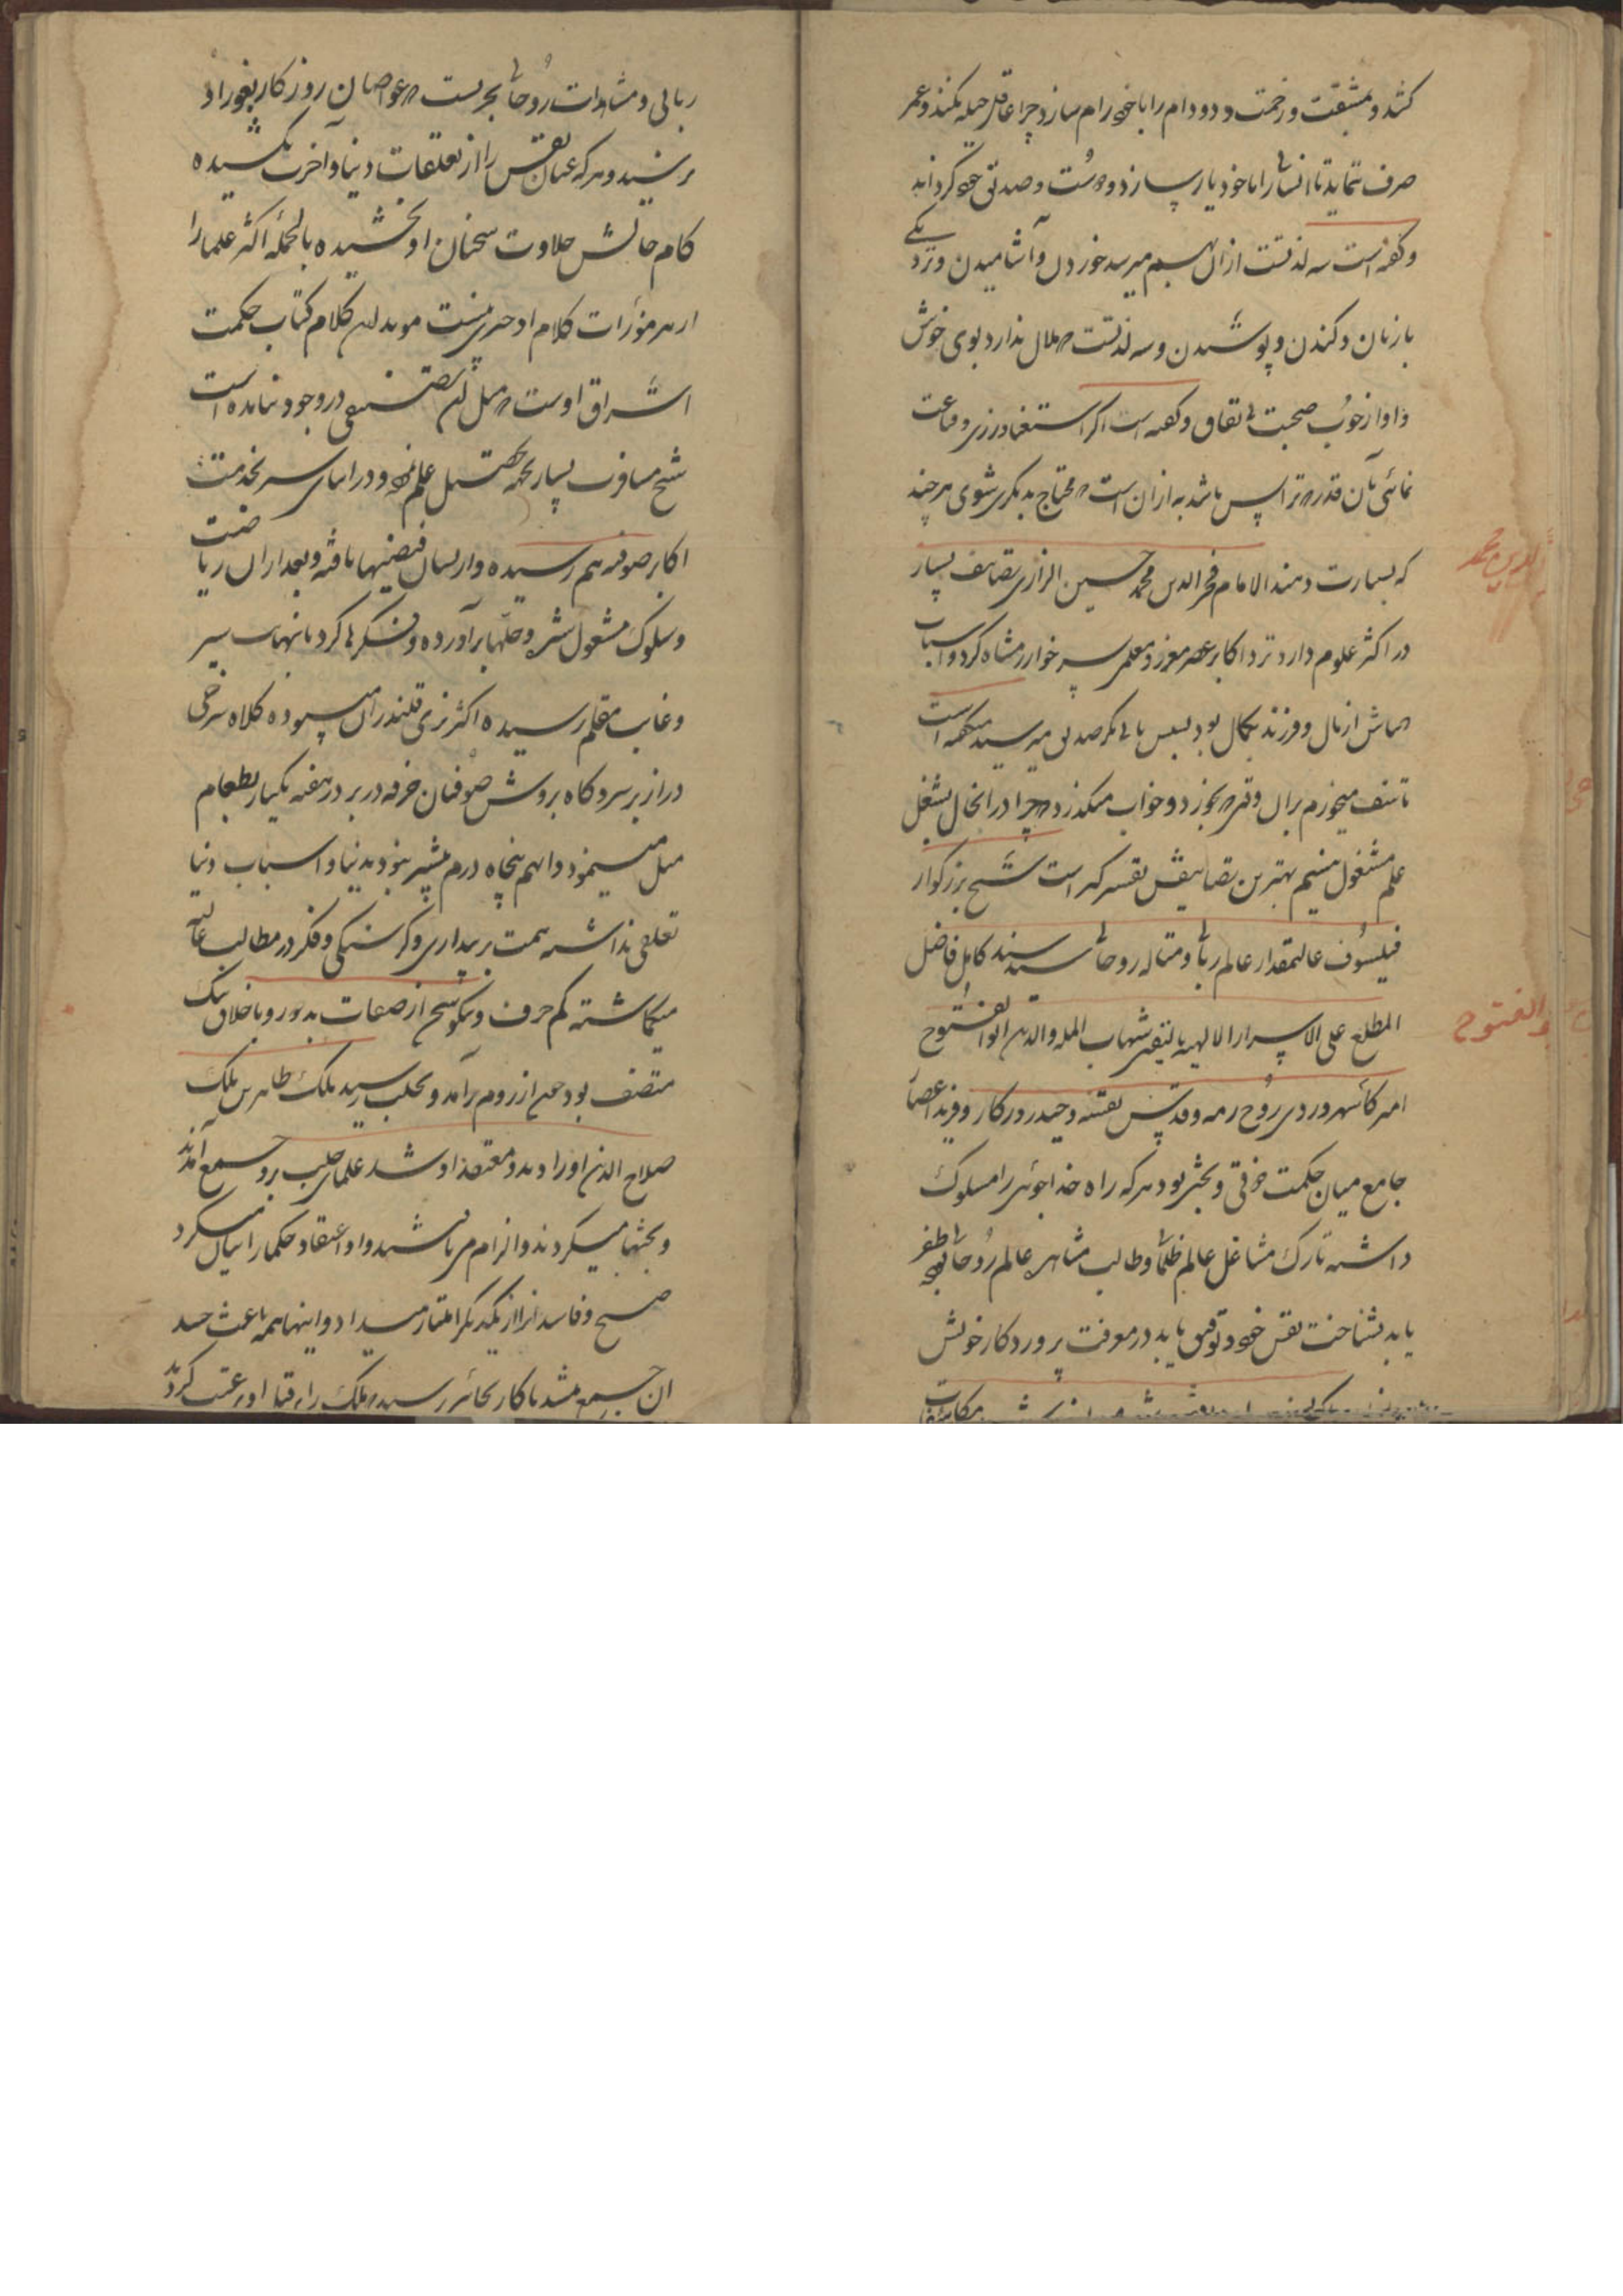 کشد و بمشقت و زحمت و دد و دام را با خود رام سازد چرا عاقل حیله نکند و عمر
صرف ننماید تا انسانی را با خود یار سازد و دوست و صدیق خود گرداند
و گفته است سه لذتست از ان بهم میرسد خوردن و آشامیدن و نزدیکی
با زنان و کندن و پوشیدن و سه لذتست که ملال ندارد بوی خوش
و اواز خوب صحبت بی نفاق و گفته است اگر استغنا ورزی و قناعت
نمائی بآن قدر که ترا بس باشد به از ان است که محتاج بدیگری شوی هر چند
که بسیارت دهند الامام فخر الدین محمد حسین الرازی تصانیف بسیار
در اکثر علوم دارد نزد اکابر عصر معزز و معلم پسر خوارزمشاه کرد و اسباب
معاش از مال و فرزند بکمال بود میگفته است
تاسف میخورم بران وقتی که بخورد و خواب میگذرد که چرا در انحال بشغل
علم مشغول نیستم بهترین تصانیفش تفسیر کبیر است شیخ بزرگوار
فیلسوف عالیمقدار عالم ربانی و متاله روحانی سید سند کامل فاضل
المطلع علی الاسرار الالهیه بالیقین شهاب المله و الدین ابوالفتوح
سهروردی روح رمسه و قدس نفسه وحید روزگار و فرید اعصار
جامع میان حکمت ذوقی و بحثی بود هر که راه خداجوئی را مسلوک
داشته تارک مشاغل عالم ظلمانی و طالب مشاهده عالم روحانی بوده ظفر
یابد بشناخت نفس خود و توفیق یابد در معرفت پروردگار خویش
مکاشفات
الدین محمد
ابو الفتوح
ربانی و مشاهدات روحانی بحریست که غواصان روزگار بغور او
نرسیده و هر که عنان نفس را از تعلقات دنیا و آخرت نکشیده
کام جانش حلاوت سخنان او نچشیده بالجمله اکثر علما را
از مرموزات کلام او خبری نیست موید این کلام کتاب حکمت
اشراق اوست که مثل آن تصنیفی در وجود نیامده است
شیخ مسافرت بسیار بجهه تحصیل علم نموده و در اثنای سیر بخدمت
اکابر صوفیه هم رسیده و از ایشان فیضها یافته و بعد از ان ریاضت
و سلوک مشغول شده و خلتها برآورده و فکرها کرد تا بنهایت سیر
و غایت مقام رسیده اکثر بزی قلندران میبوده کلاه سرخی
دراز بر سر و گاه بروش صوفیان خرقه در بر در هفته یکبار بطعام
میل مینمود و انهم پنجاه درم بیشتر نبود بدنیا و اسباب دنیا
تعلقی نداشته همت بر بیداری و گرسنگی و فکر در مطالب عالیه
میگماشته کم حرف و نیکو سخن از صفات بد دور و باخلاق نیک
متصف بود چون از روم برآمد و بحلب رسید ملک طاهر بن ملک
صلاح الدین او را دید و معتقد او شد علمای حلب برو جمع آمدند
و بحثها میکردند و الزام می یافتند و او اعتقاد حکما را بیان میکرد
صحیح و فاسد انرا از یکدیگر امتیاز میداد و اینها همه باعث حسد
ان جمع شد تا کار بجائی رسید که ملک را بقتل او رغبت کردند